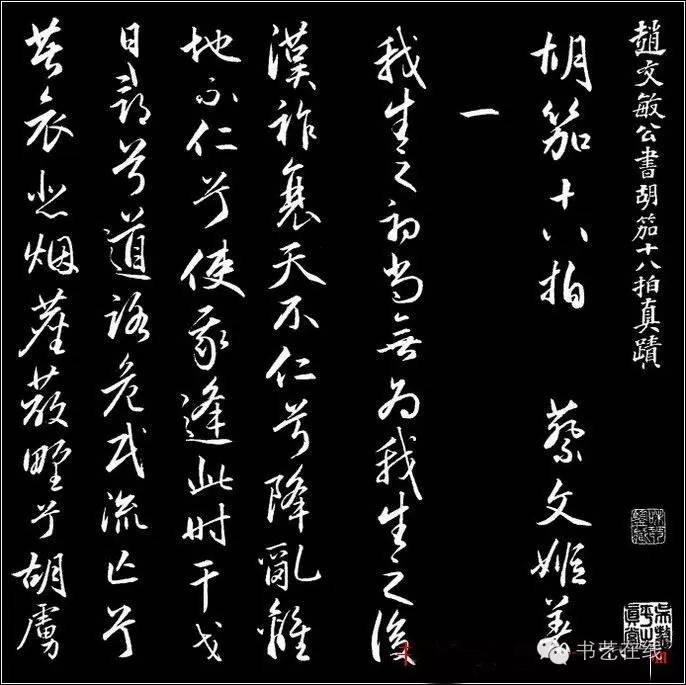 趙文敏公書胡笳十八拍真蹟
胡笳十八拍 蔡文姬
一
我生之初尚無為我生之後
漢祚衰天不仁兮降亂離
地不仁兮使我逢此時干戈
日尋兮道路危民流亡兮
共哀悲烟塵蔽野兮胡虜
书艺在线